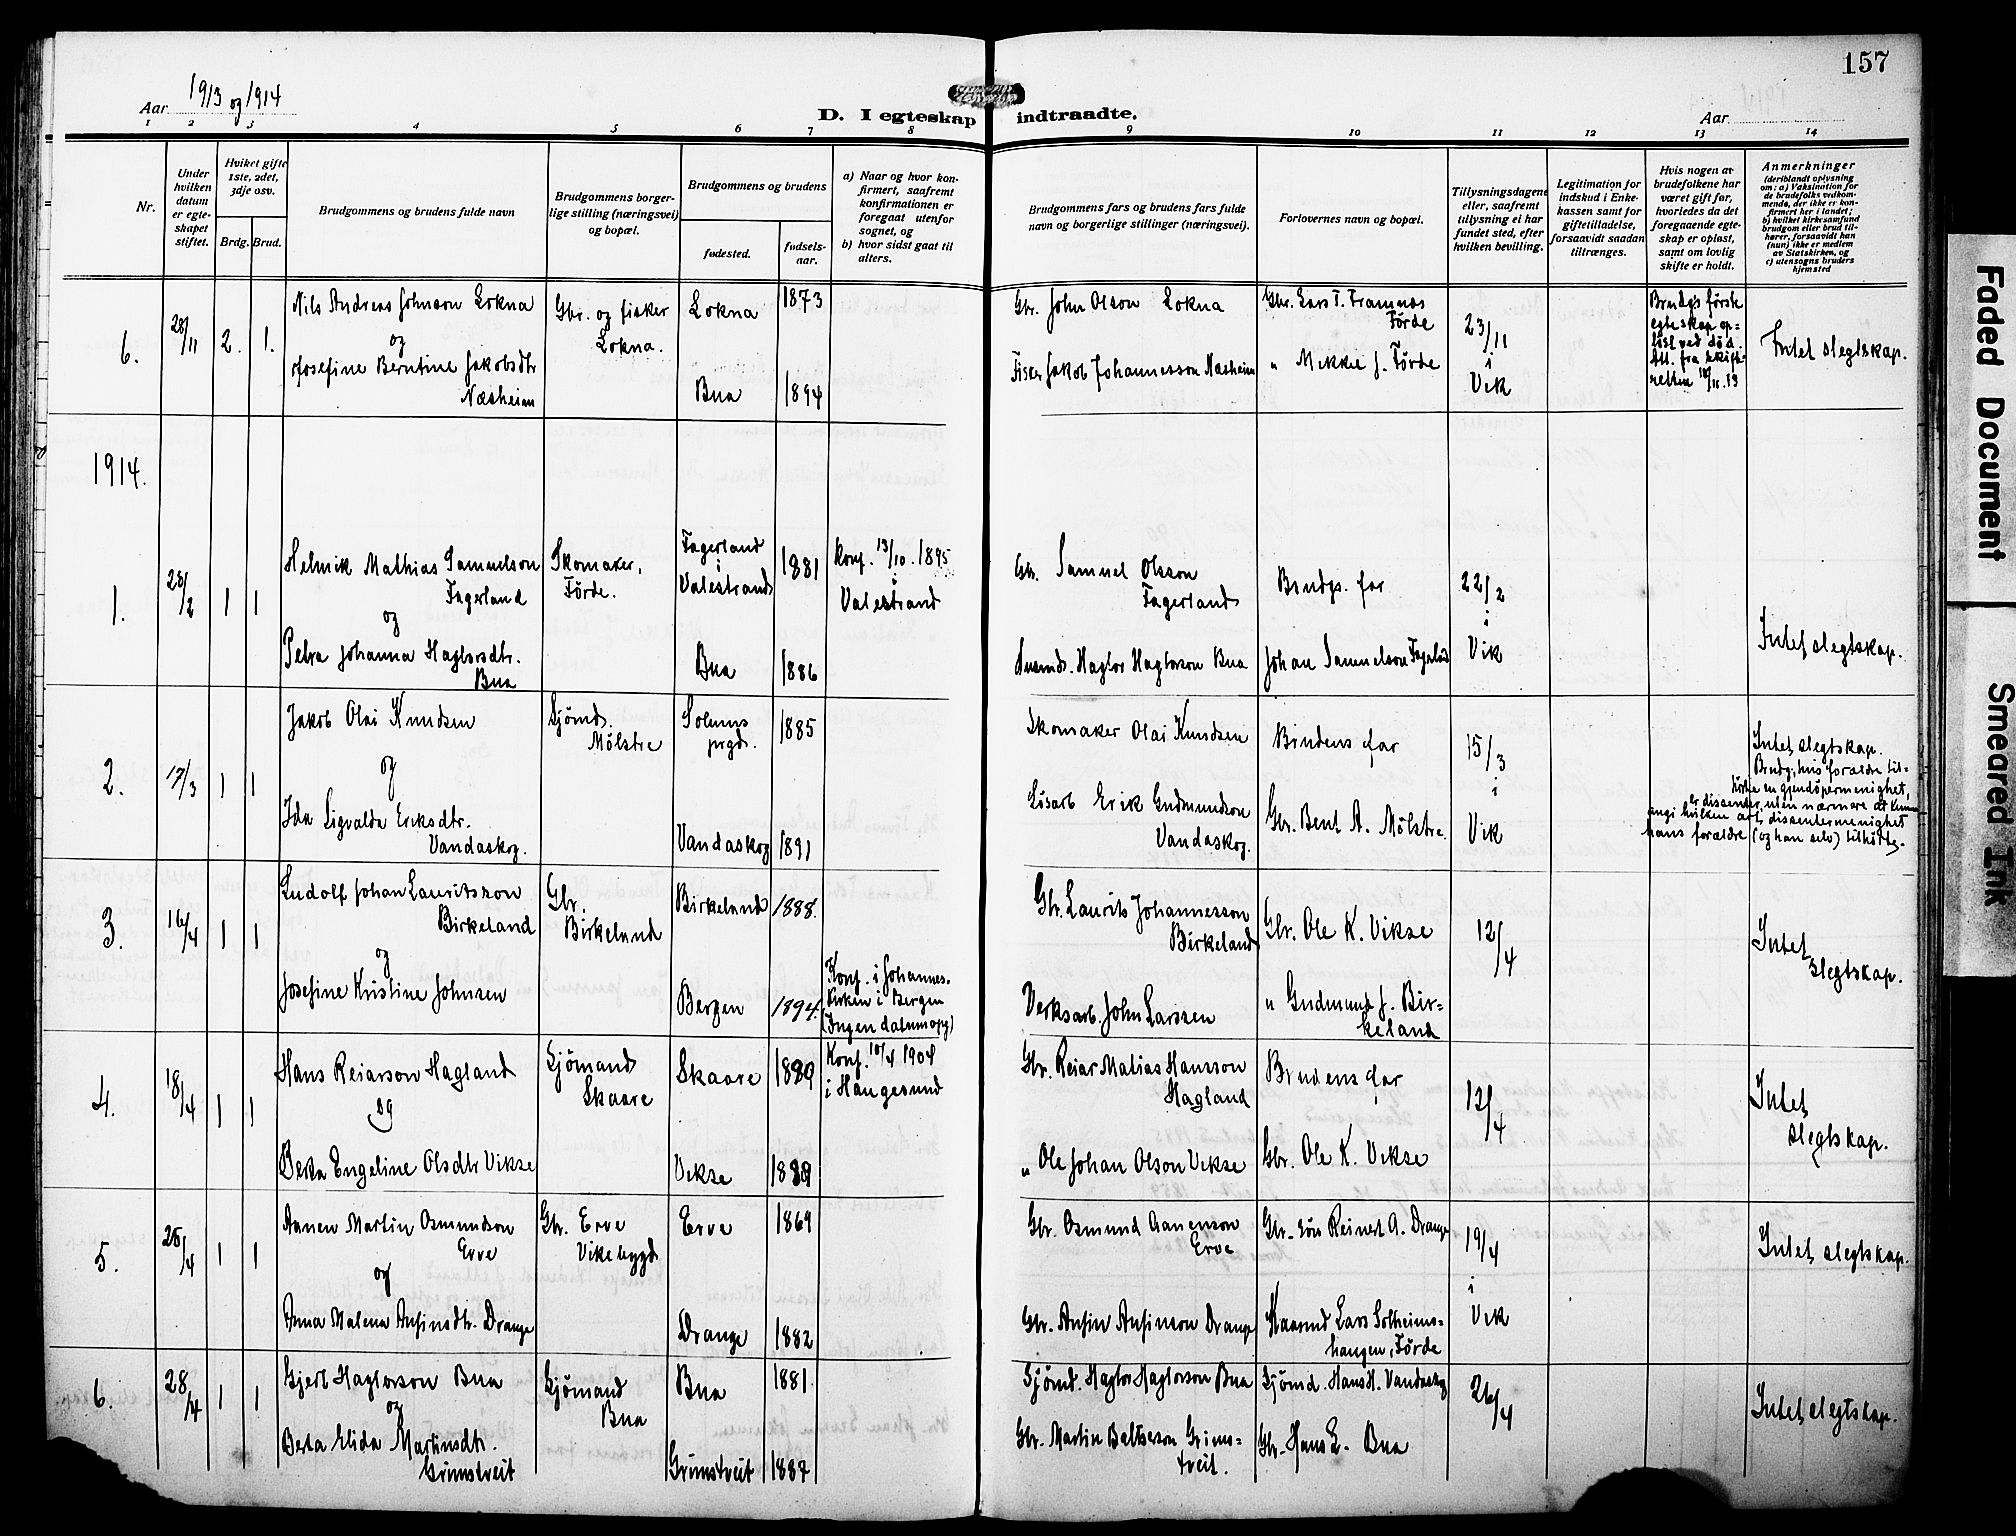 157
Aar 1913 og 1914
D. I egteskap indtraadte.
Aar
1 2 3 4 5 6 7 8 9 10 11 12 13 14
Nr.
Under hvilken datum er egteskapet stiftet.
Hvilket gifte 1ste, 2det, 3dje osv.
Brdg. Brud.
Brudgommens og brudens fulde navn
Brudgommens borgerlige stilling (næringsvei) og bopæl.
Brudgommens og brudens
fødested.
fødselsaar.
a) Naar og hvor konfirmert, saafremt konfirmationen er foregaat utenfor sognet, og
b) hvor sidst gaat til alters.
Brudgommens fars og brudens fars fulde navn og borgerlige stillinger (næringsvei).
Forlovernes navn og bopæl.
Tillysningsdagene eller, saafremt tillysning ei har fundet sted, efter hvilken bevilling.
Legitimation for indskud i Enkekassen samt for giftetilladelse, forsaavidt saadan tiltrænges.
Hvis nogen av brudefolkene har været gift før, hvorledes da det foregaaende egteskap er opløst, samt om lovlig skifte er holdt.
Anmerkninger
(deriblandt oplysning om: a) Vaksination for de brudefolks vedkommende, der ikke er konfirmert her i landet; b) hvilket kirkesamfund brudgom eller brud tilhører, forsaavidt han (hun) ikke er medlem av Statskirken, og c) utensogns bruders hjemsted
6. 28/11 2. 1.
Nils Andreas Johnson Lokna
og
Josefine Berntine Jakobsdtr
Næsheim
Gbr. og fisker
Lokna.
Lokna 1873
Bua 1894
Gbr. John Olson Lokna
Fisker Jakob Johannesson Næsheim
Gbr. Lars T. Framnes
Førde
" Mikkel J. Førde
23/11
i
Vik
Brudgs første
egteskap op=
løst ved død.
Att. fra skifte-
retten 10/11. 13
Intet slegtskap.
1914.
1. 28/2 1 1
Helmik Mathias Samuelson
Fagerland
og
Petra Johanna Haglorsdtr.
Bua
Skomaker,
Førde.
Fagerland
i
Valestrand
1881
Bua 1886
Konf. 13/10. 1895
i
Valestrand
Gbr. Samuel Olsson
Fagerland
Haglor Haglorson Bua
Brudgs. far
Johan Samuelson Fagerland
22/2
i
Vik
Intet slegtskap.
2. 17/3 1 1
Jakob Olai Knudsen
og
Ida Sigvalda Eriksdtr.
Vandaskog.
Sjømd.
Mølstre
Solums
prgd.
1885
Vandaskog 1891
Skomaker Olai Knudsen
Løsarb Erik Gudmundson
Vandaskog.
Brudens far
Gbr. Bent A. Mølstre
15/3
i
Vik
Intet slegtskap.
Brudg., hvis forældre til-
hørte en gjendøpermenighet,
er dissenter, uten nærmere at kunne
angi hvilken art, dissentermenighet
hans forældre (og han selv) tilhørte.
3. 16/4 1 1
Ludolf Johan Lauritsson
Birkeland
og
Josefine Kristine Johnsen
Gbr.
Birkeland
Birkeland 1888.
Bergen 1894.
Konf. i Johannes-
kirken i Bergen
(Ingen datumopg)
Gbr. Laurits Johannesson
Birkeland
Verksarb. John Larssen
Gbr. Ole K. Vikse
" Gudmund J. Bir-
keland
12/4
Intet
slegtskap.
4. 18/4 1 1
Hans Reiarson Hagland
og
Berta Engeline Olsdtr Vikse
Sjømand
Skaare
Skaare 1889
Vikse 1889
Konf. 10/4 1904
i Haugesund
Gbr. Reiar Matias Hansson
Hagland
" Ole Johan Olson Vikse
Brudens far
Gbr. Ole K. Vikse
12/4
Intet
slegtskap.
5. 25/4 1 1
Aanen Martin Osmundson
Erve
og
Anna Malena Ansinsdtr. Drange
Gbr. Erve
Vikebygd
Erve 1869
Drange 1882
Gbr. Osmund Aanenson
Erve
Gbr. Ansin Ansinson Drange
Gbr. søn Reinert A. Drange
Lars Solheims-
haugen, Førde
19/4
i
Vik
Intet slegtskap.
6. 28/4 1 1
Gjert Haglorson Bua
og
Berta Elida Martinsdtr.
Grimstveit
Sjømand
Bua
Bua 1881
Grimstveit 1887
Sjømd. Haglor Haglorson Bua
Gbr. Martin Baltseson Grims-
tveit.
Sjømd. Hans H. Vandaskog
Gbr. Hans L. Bua
26/4
Intet slegtskap.
Faded Document
Smeared Ink